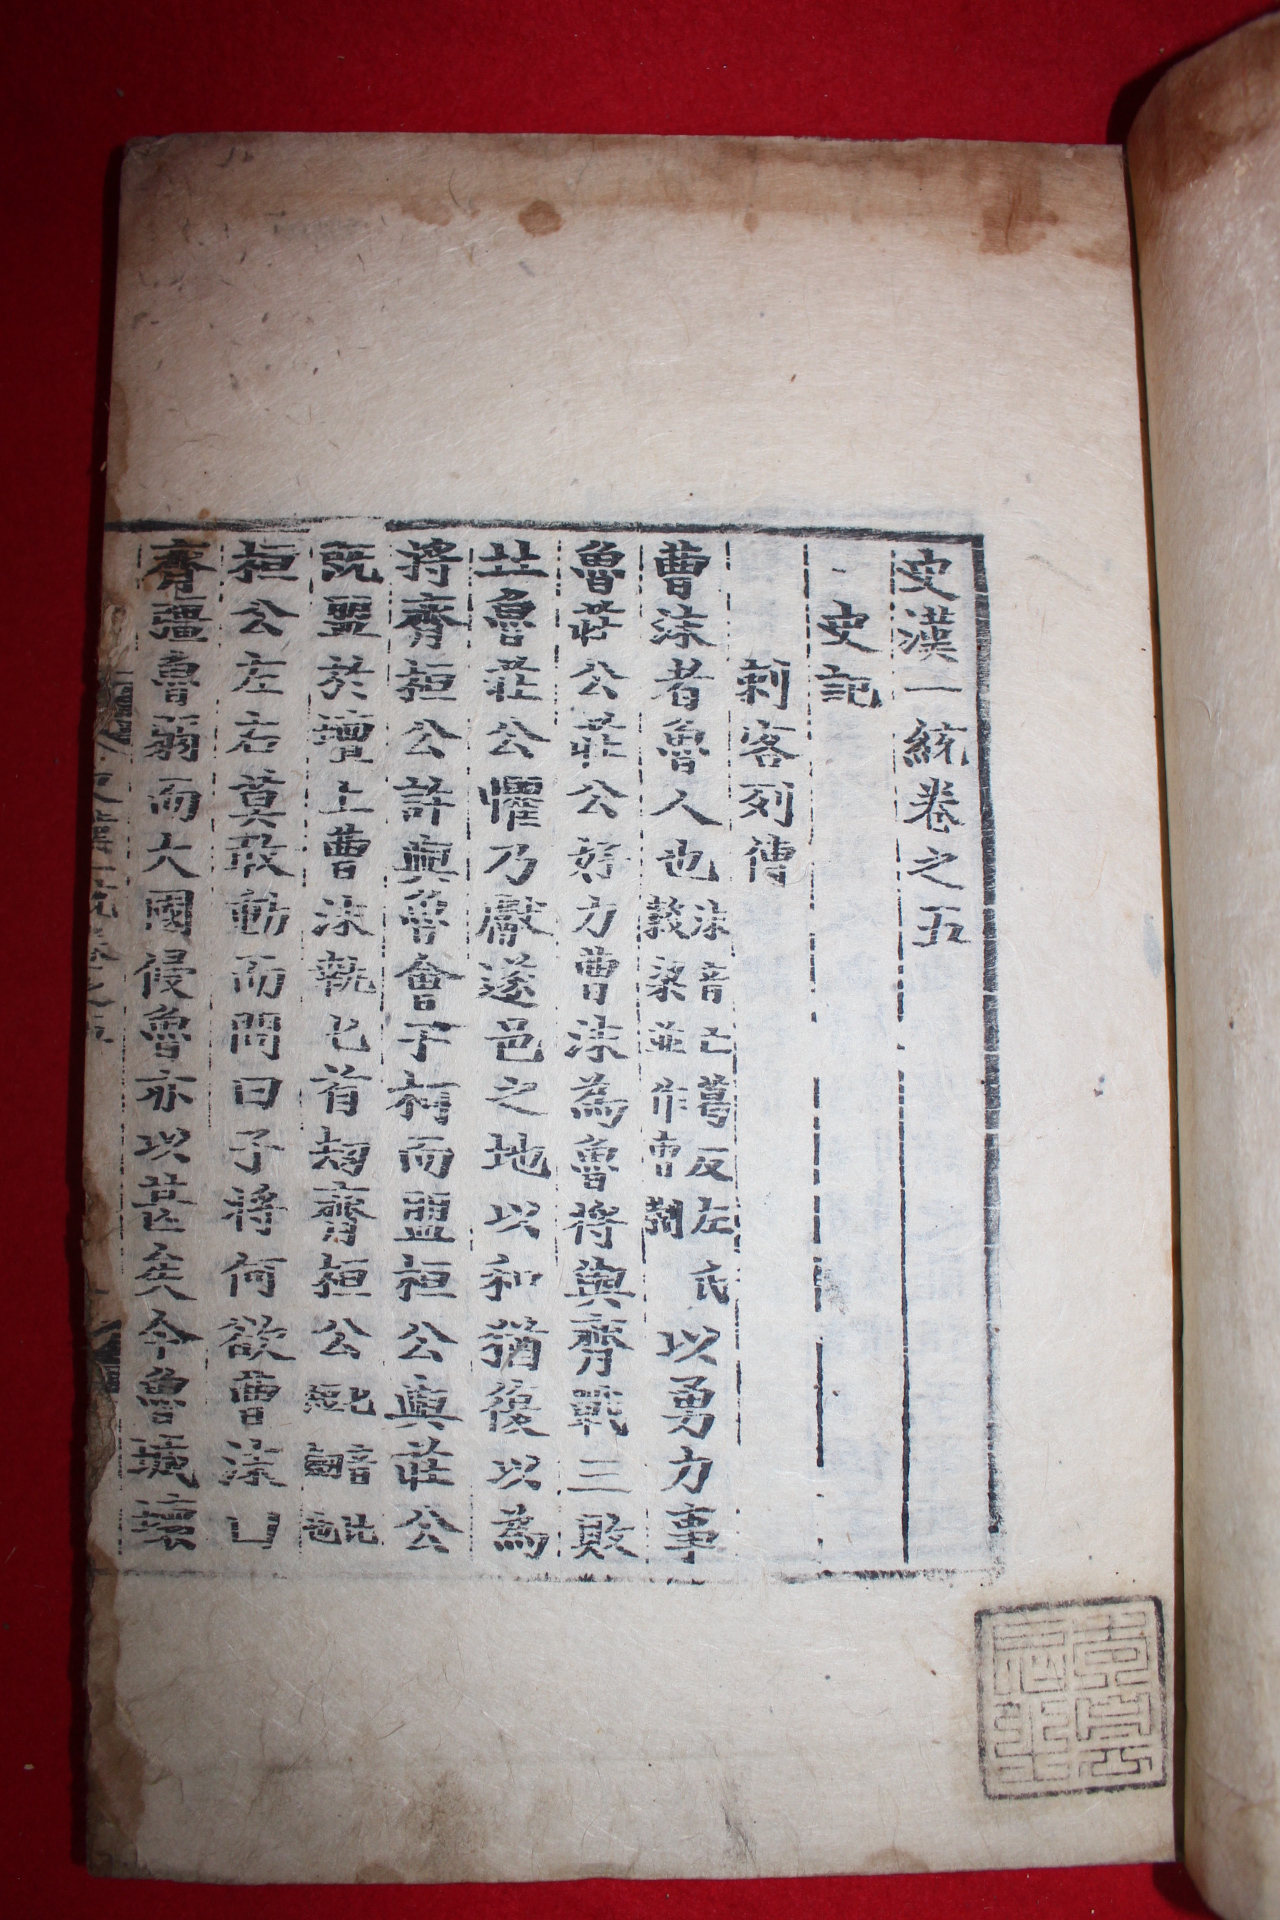 史漢一統卷之五
史記
刺客列傳
曹沫者魯人也沫音亡葛反左氏穀梁並作曹劌以勇力事
魯莊公莊公好力曹沫為魯將與齊戰三敗
北魯莊公懼乃獻遂邑之地以和猶復以為
將齊桓公許與魯會于柯而盟桓公與莊公
既盟於壇上曹沫執匕首劫齊桓公
桓公左右莫敢動而問曰子將何欲曹沫曰
齊彊魯弱而大國侵魯亦以甚矣今魯城壞
史漢一統卷之五